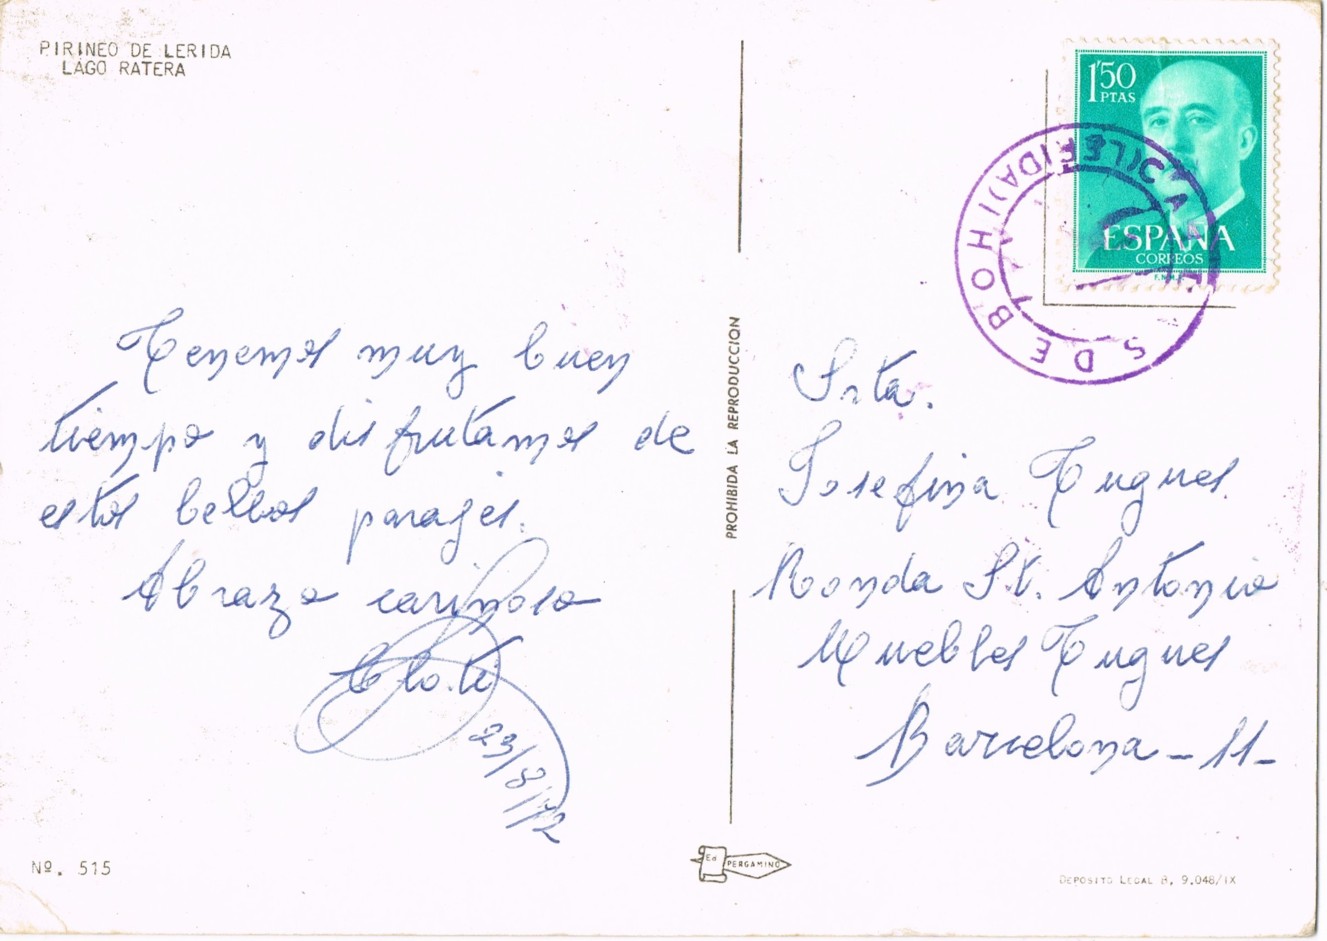 PIRINEO DE LERIDA
LAGO RATERA
Tenemos muy buen
tiempo y disfrutamos de
estos bellos parajes.
Abrazo cariñoso
Cloti
23/8/72
Nº. 515
PROHIBIDA LA REPRODUCCION
Ed PERGAMINO
1'50
PTAS
ESPAÑA
CORREOS
F.N.M.T.
S DE BOHI (LERIDA)
Srta.
Josefina Tugues
Ronda St. Antonio
Muebles Tugues
Barcelona - 11-
DEPOSITO LEGAL B. 9.048/IX